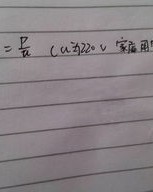 = P/u (u为220v 家庭用